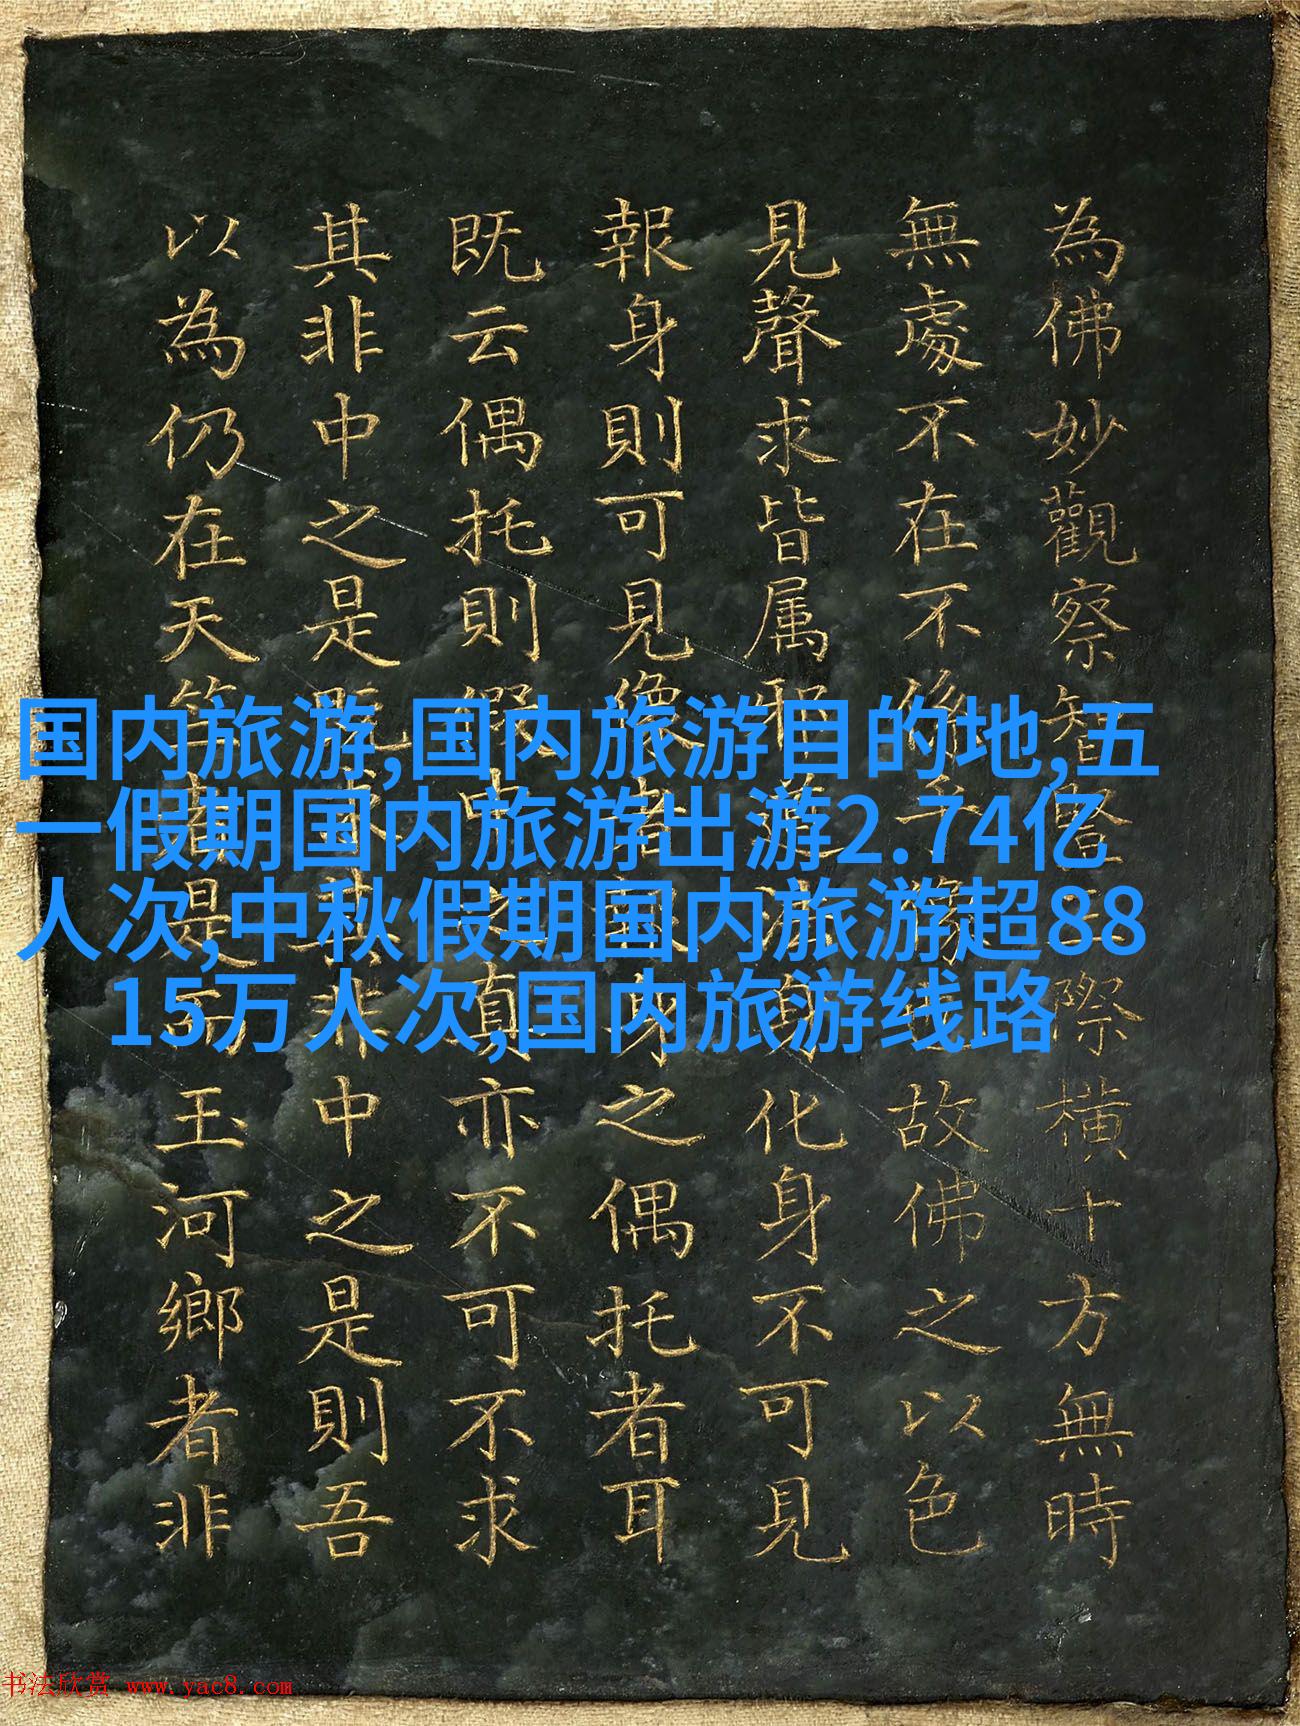 為佛妙觀察智證際橫十方無時
無處不在不故佛之以色
見聲求皆属邪道法身化身不可見
報身則可見像者報身之偶托者耳
既云偶托則假中之真亦不可不求
其非中之是既求其非中之是則吾
以為仍在天竺者是而玉河鄉者非
国内旅游,国内旅游目的地,五
一假期国内旅游出游2.74亿
人次,中秋假期国内旅游超88
15万人次,国内旅游线路
书法欣赏 www.yac8.com